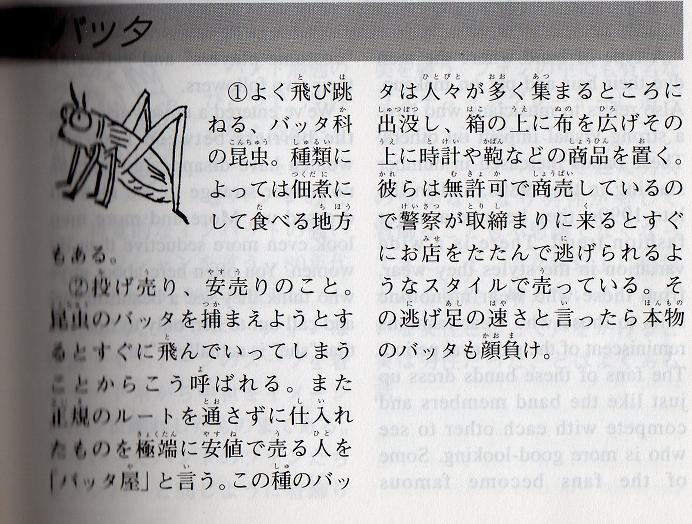 バッタ
①よく飛び跳
ねる、バッタ科
の昆虫。種類に
よっては佃煮に
して食べる地方
もある。
②投げ売り、安売りのこと。
昆虫のバッタを捕まえようとす
るとすぐに飛んでいってしまう
ことからこう呼ばれる。また
正規のルートを通さずに仕入れ
たものを極端に安値で売る人を
「バッタ屋」と言う。この種のバッ
タは人々が多く集まるところに
出没し、箱の上に布を広げその
上に時計や鞄などの商品を置く。
彼らは無許可で商売しているの
で警察が取締まりに来るとすぐ
にお店をたたんで逃げられるよ
うなスタイルで売っている。そ
の逃げ足の速さと言ったら本物
のバッタも顔負け。